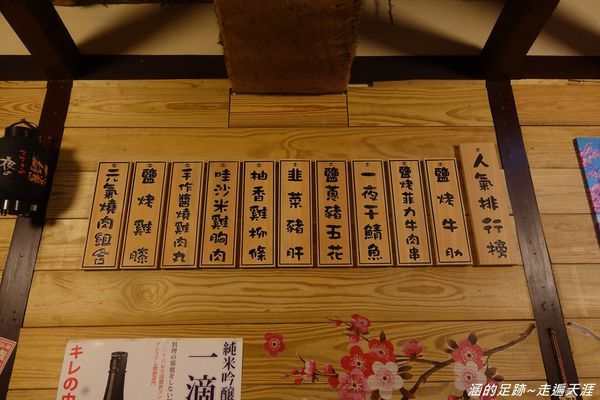 人氣排行榜
鹽烤牛肋
鹽烤菲力牛肉串
一夜干鯖魚
鹽蔥豬五花
韭菜豬肝
柚香雞柳條
哇沙米雞胸肉
手作醬燒雞肉丸
鹽烤雞膝
元氣燒肉組合
純米吟醸
一滴
料理の邪魔をしない
キレの
涵的足跡~走遍天涯